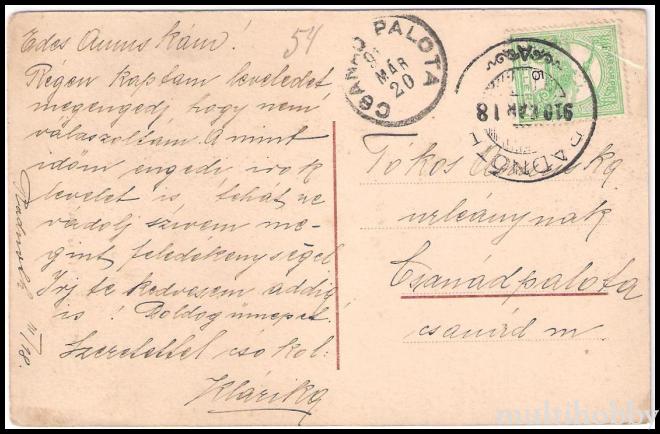 Edes Annuskám!
Régen kaptam leveledet
megengedj hogy nem
válaszoltam. Amint
időm engedi irok
levelet is, tehát ne
vádolj szivem me-
gint feledékenységel
Irj te kedvesem addig
is! Boldog ünnepet.
Szeretettel csókol:
Klárika
Radnóth III/18.
54
CSANÁD PALOTA
MÁR
20
910 MÁR 18
RADNÓT
Tókos
urleánynak
Csanádpalota
csanád m.
multihobby